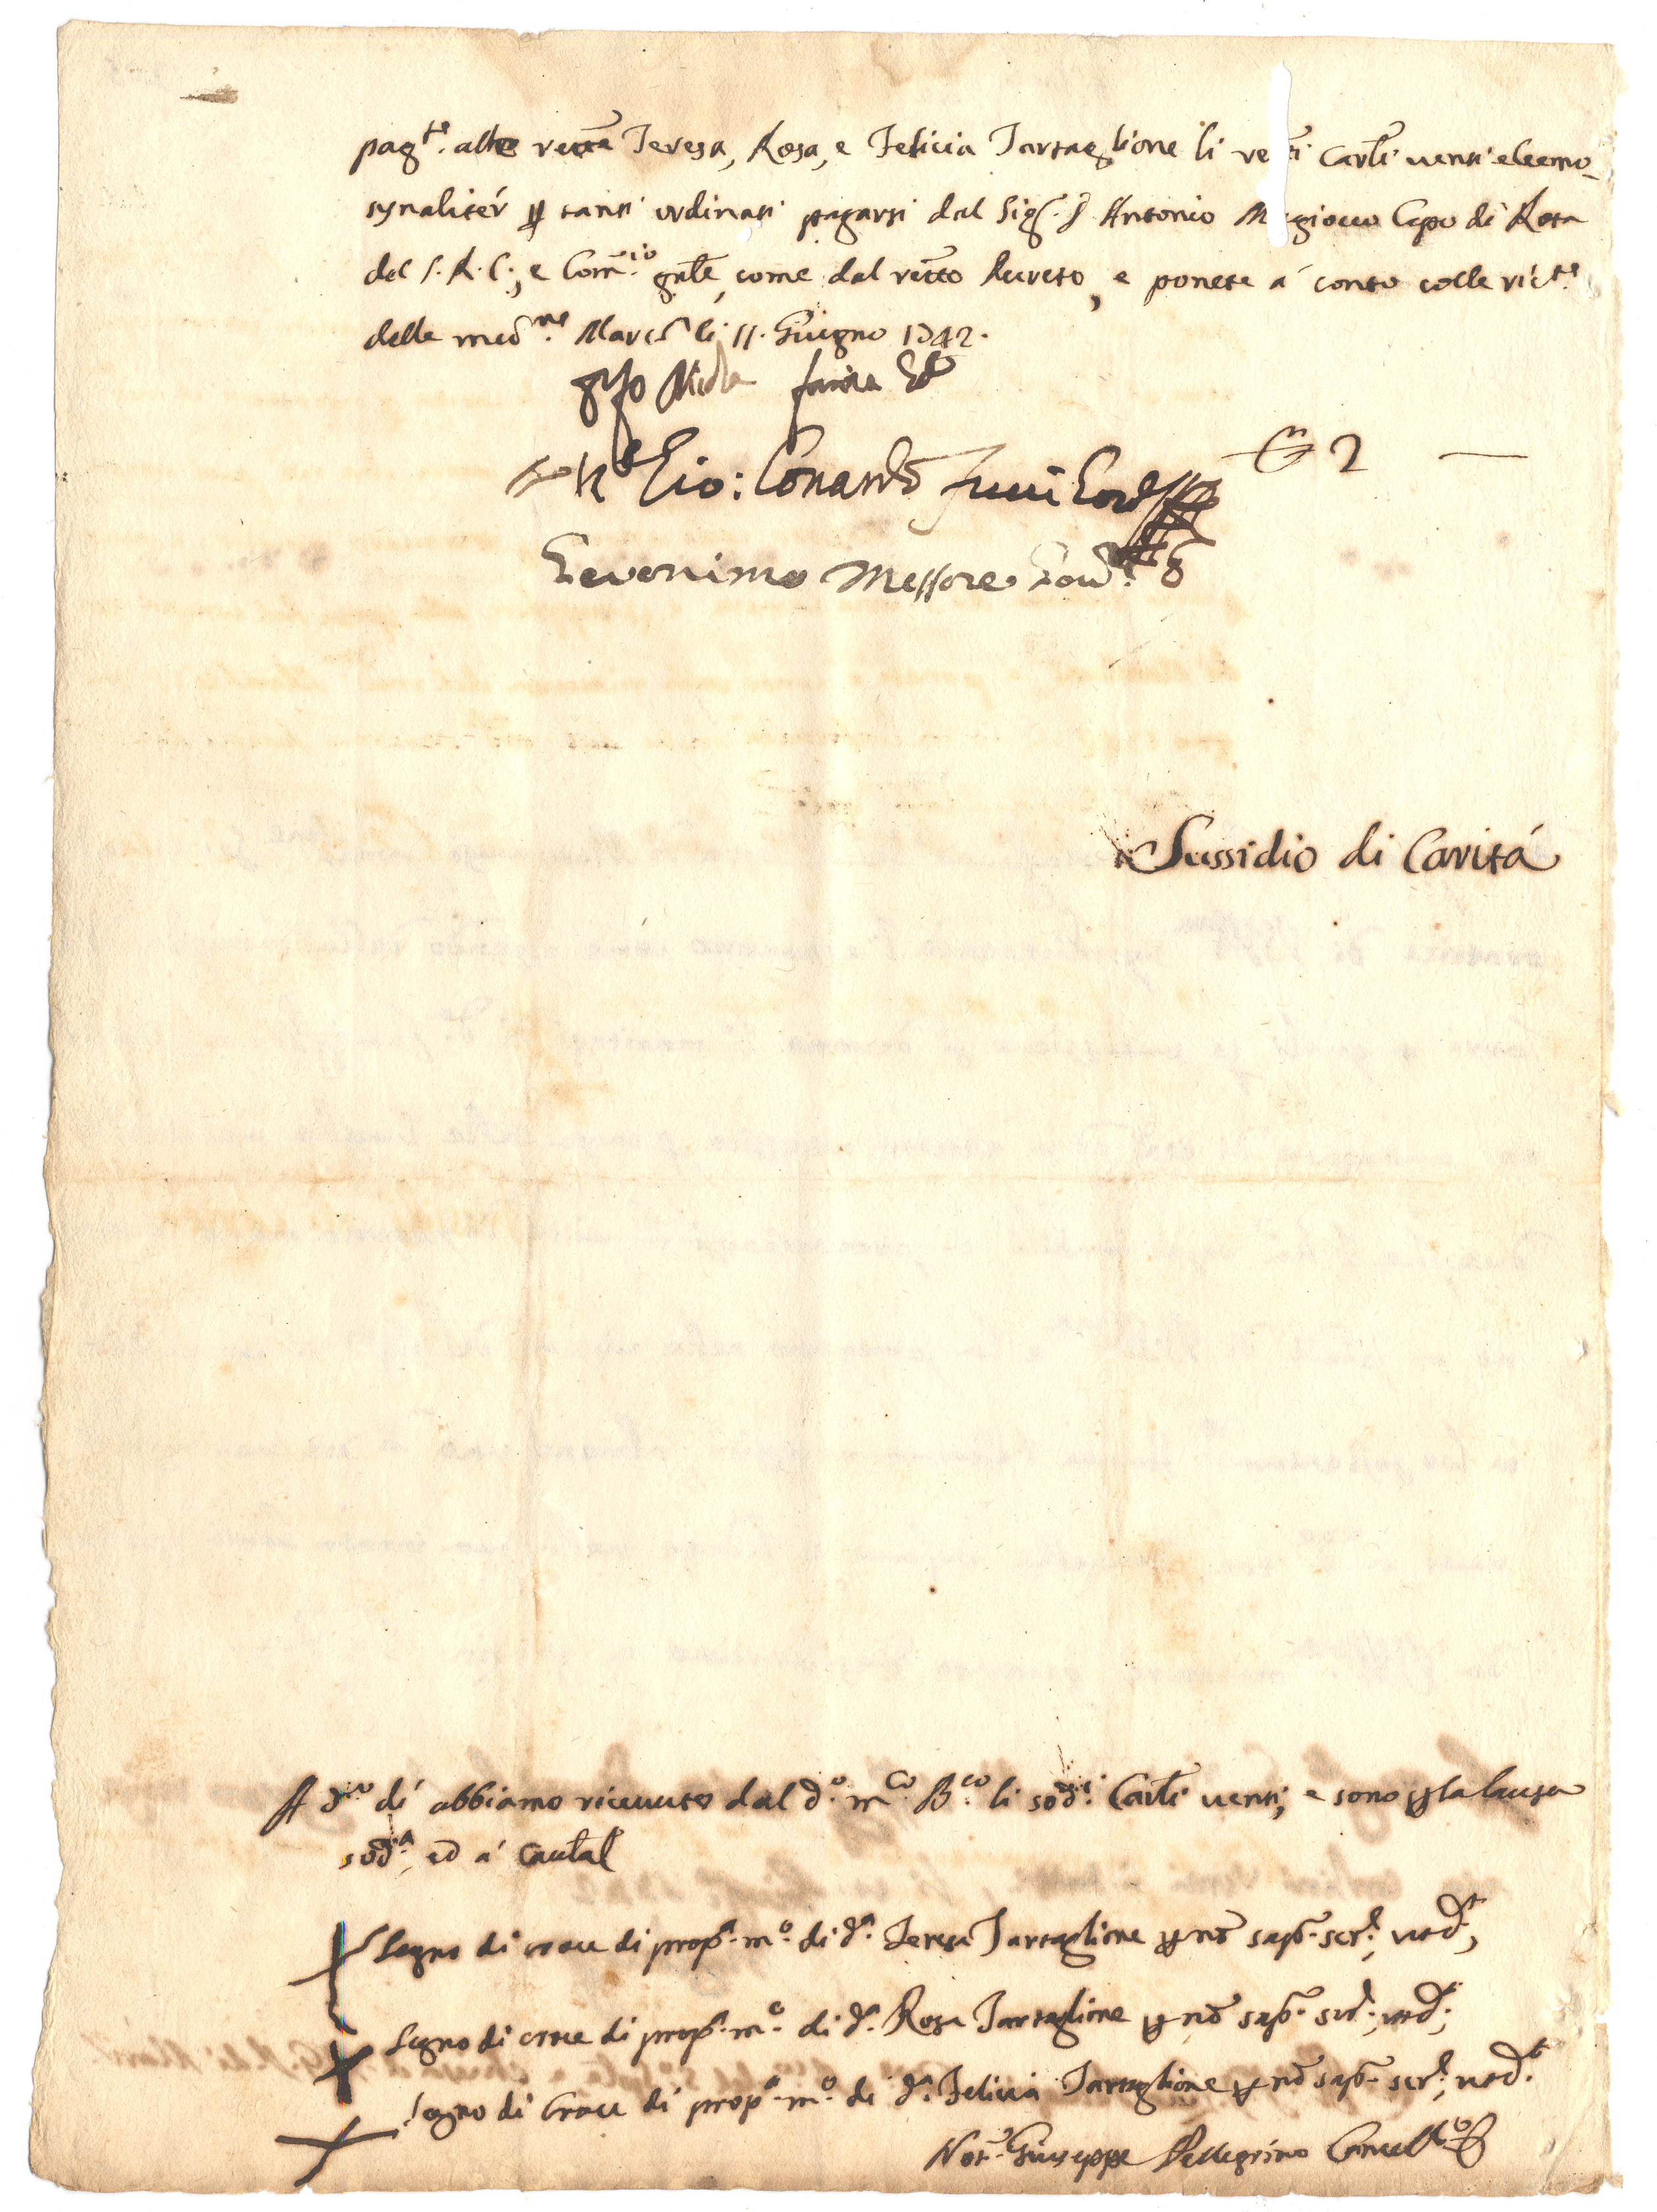 pag.te alle retr̃e Teresa, Rosa, e Felicia Tartaglione li re ti Carl̃i venti eleemo_
synalitér ꝑ tanti ordinati pagarsi dal Sig.r D. Antonio M giocco Capo di Rota
del S.R.C., e Com̃.io gñle, come dal retr̃o decreto, e ponete á conto colle ric.te
delle med.me Marc. li 11. Giugno 1742.
Nicola
Gio: Conardo
2 —
Geronimo Messore
Sussidio di Caritá
A d.o dí abbiamo ricevuto dal d.o m.co B.co li sod.i Carl̃i venti, e sono ꝑ la causa
sod.a, ed á cautel
Segno di croce di prop.a m.o di d.a Teresa Tartaglione ꝑ nõ sap.e scr.e, ut d.r,
Segno di croce di prop.a m.o di d.a Rosa Tartaglione ꝑ nõ sap.e scr.e, ut d.r,
Segno di Croce di prop.a m.o di d.a Felicia Tartaglione ꝑ nõ sap.e scr.e, ut d.r
Not.r Giuseppe Pellegrino Cancell.o